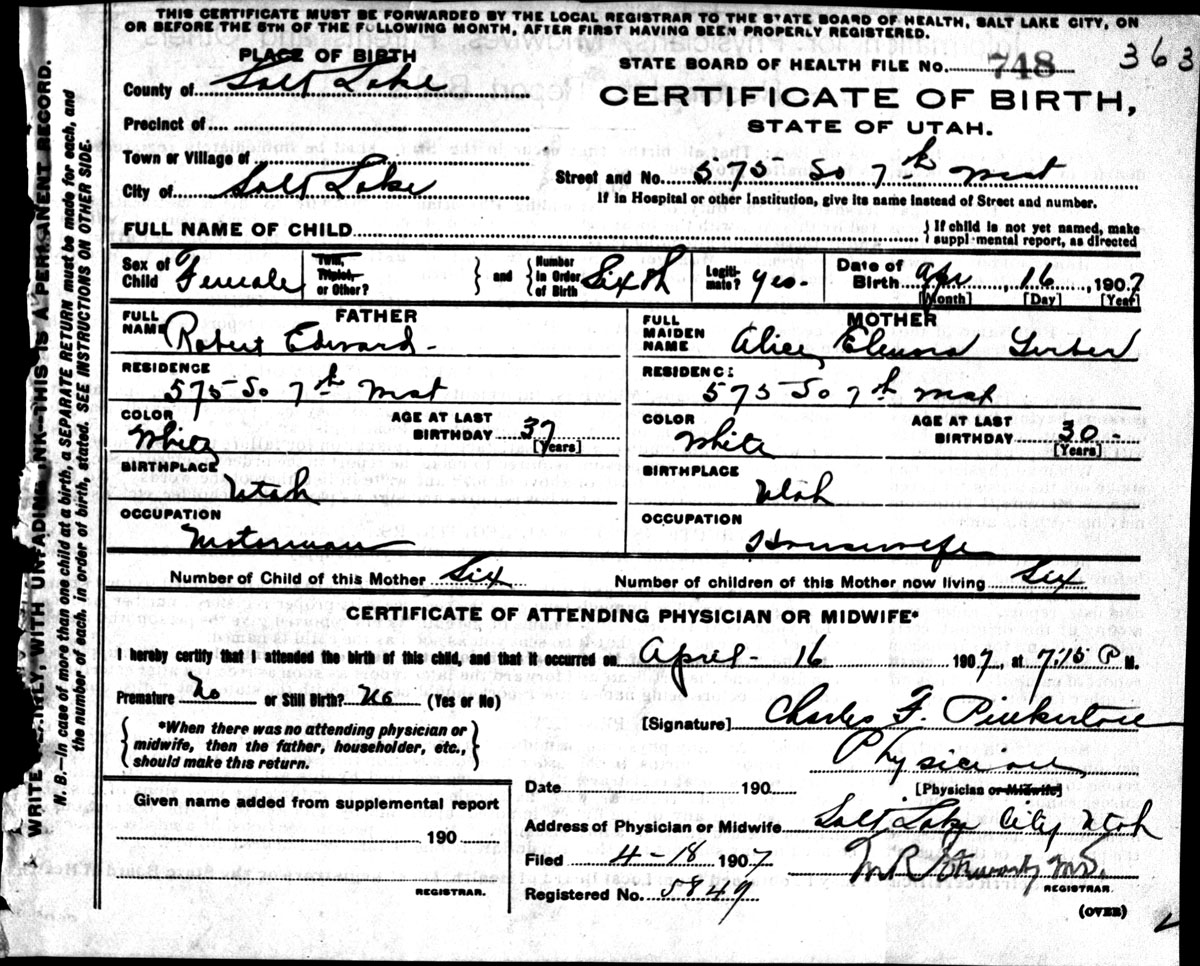 THIS CERTIFICATE MUST BE FORWARDED BY THE LOCAL REGISTRAR TO THE STATE BOARD OF HEALTH, SALT LAKE CITY, ON
OR BEFORE THE 5TH OF THE FOLLOWING MONTH, AFTER FIRST HAVING BEEN PROPERLY REGISTERED.
363
PLACE OF BIRTH
STATE BOARD OF HEALTH FILE No. 748
County of Salt Lake
CERTIFICATE OF BIRTH,
Precinct of
STATE OF UTAH.
Town or Village of
City of Salt Lake
Street and No. 575 So 7th West
If in Hospital or other Institution, give its name instead of Street and number.
FULL NAME OF CHILD
If child is not yet named, make
supplemental report, as directed
Sex of Child Female
Twin, Triplet, or Other?
and
Number in Order of Birth Sixth
Legitimate? yes.
Date of Birth Apr 16, 1907
[Month] [Day] [Year]
FATHER
FULL NAME Robert Edward
RESIDENCE
575 So 7th West
COLOR White
AGE AT LAST BIRTHDAY 37
[Years]
BIRTHPLACE
Utah
OCCUPATION
Motorman
MOTHER
FULL MAIDEN NAME Alice
RESIDENCE
575 So 7th West
COLOR White
AGE AT LAST BIRTHDAY 30-
[Years]
BIRTHPLACE
Utah
OCCUPATION
Housewife
Number of Child of this Mother Six
Number of children of this Mother now living Six
CERTIFICATE OF ATTENDING PHYSICIAN OR MIDWIFE*
I hereby certify that I attended the birth of this child, and that it occurred on April - 16 1907, at 7:15 P M.
Premature No or Still Birth? No (Yes or No)
*When there was no attending physician or
midwife, then the father, householder, etc.,
should make this return.
[Signature] Charles F. Pinkerton
Physician
[Physician or Midwife]
Given name added from supplemental report
190
REGISTRAR.
Date 190
Address of Physician or Midwife Salt Lake City Utah
Filed 4-18 1907
REGISTRAR.
Registered No. 5849
(OVER)
WITH UNFADING INK-THIS IS A PERMANENT RECORD.
N. B.—In case of more than one child at a birth, a SEPARATE RETURN must be made for each, and
the number of each, in order of birth, stated. SEE INSTRUCTIONS ON OTHER SIDE.